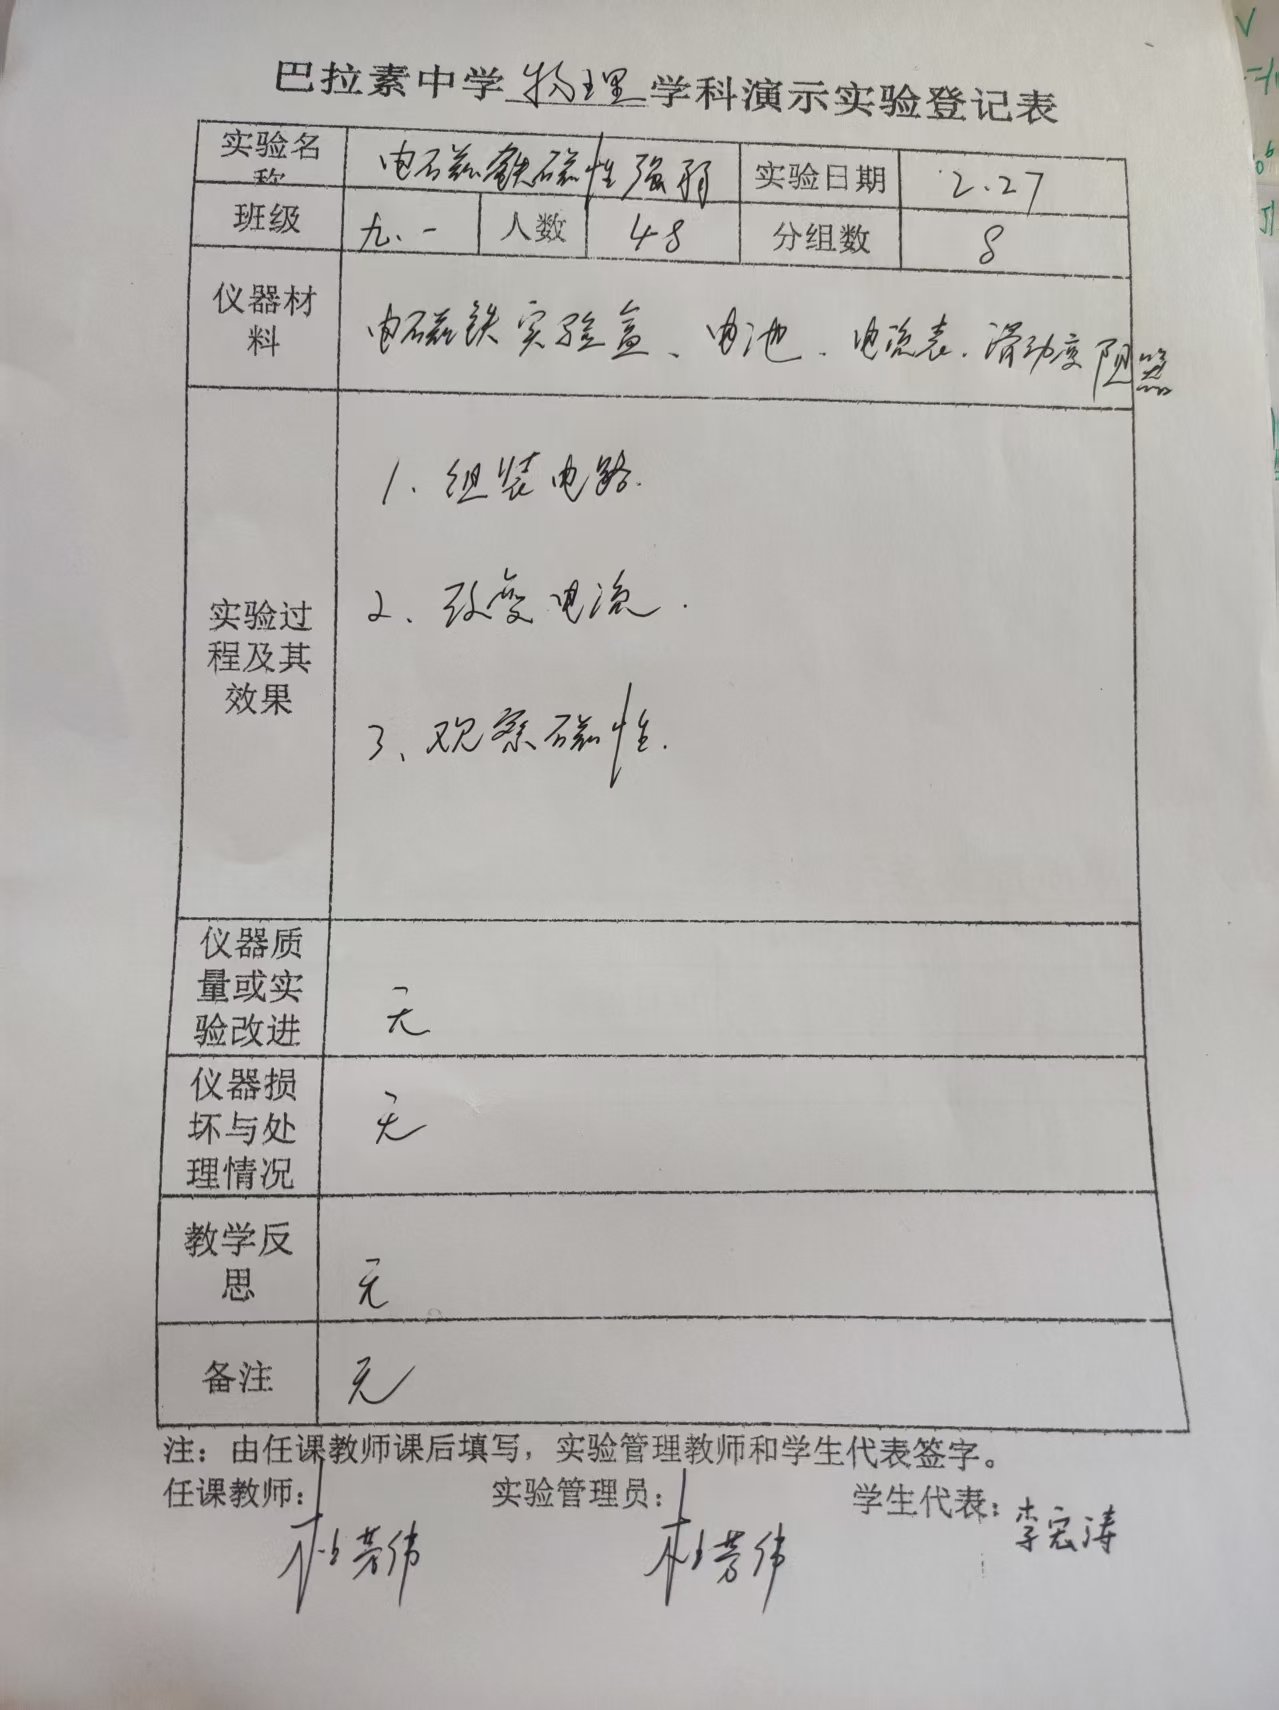 巴拉素中学物理学科演示实验登记表
实验名称 电磁铁磁性强弱 实验日期 2.27
班级 九.一 人数 48 分组数 8
仪器材料 电磁铁实验盒、电池、电流表、滑动变阻器
实验过程及其效果
1、组装电路.
2、改变电流.
3、观察磁性.
仪器质量或实验改进 无
仪器损坏与处理情况 无
教学反思 无
备注 无
注：由任课教师课后填写，实验管理教师和学生代表签字。
任课教师： 实验管理员： 学生代表：李宏涛
杜芳伟 杜芳伟